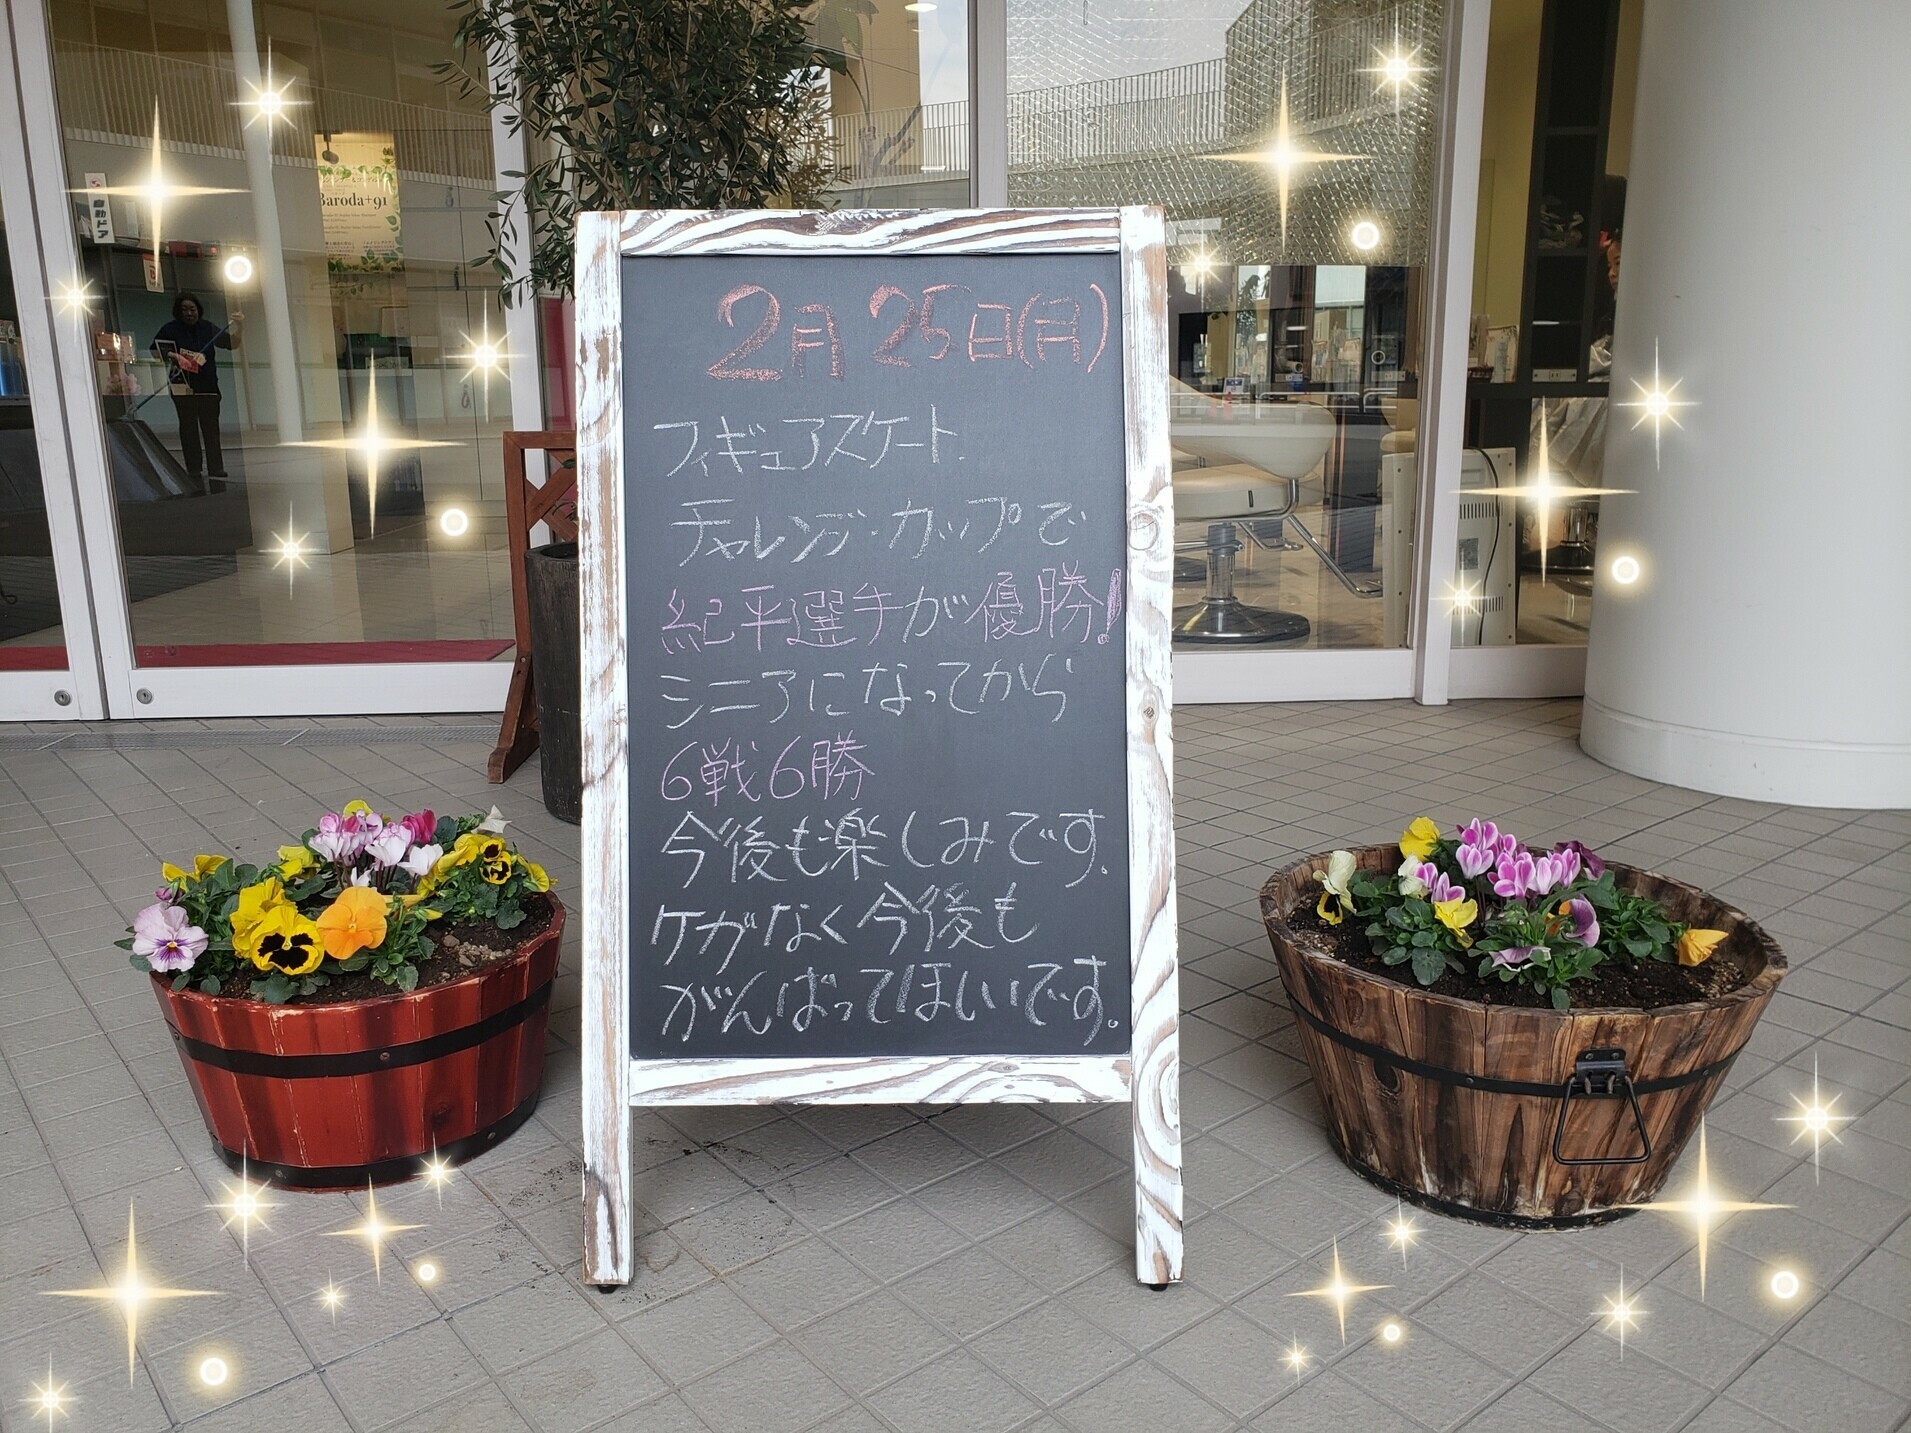 Baroda+91
自動ドア
2月25日(月)
フィギュアスケート
チャレンジ・カップで
紀平選手が優勝!
シニアになってから
6戦6勝
今後も楽しみです。
ケガなく今後も
がんばってほしいです。